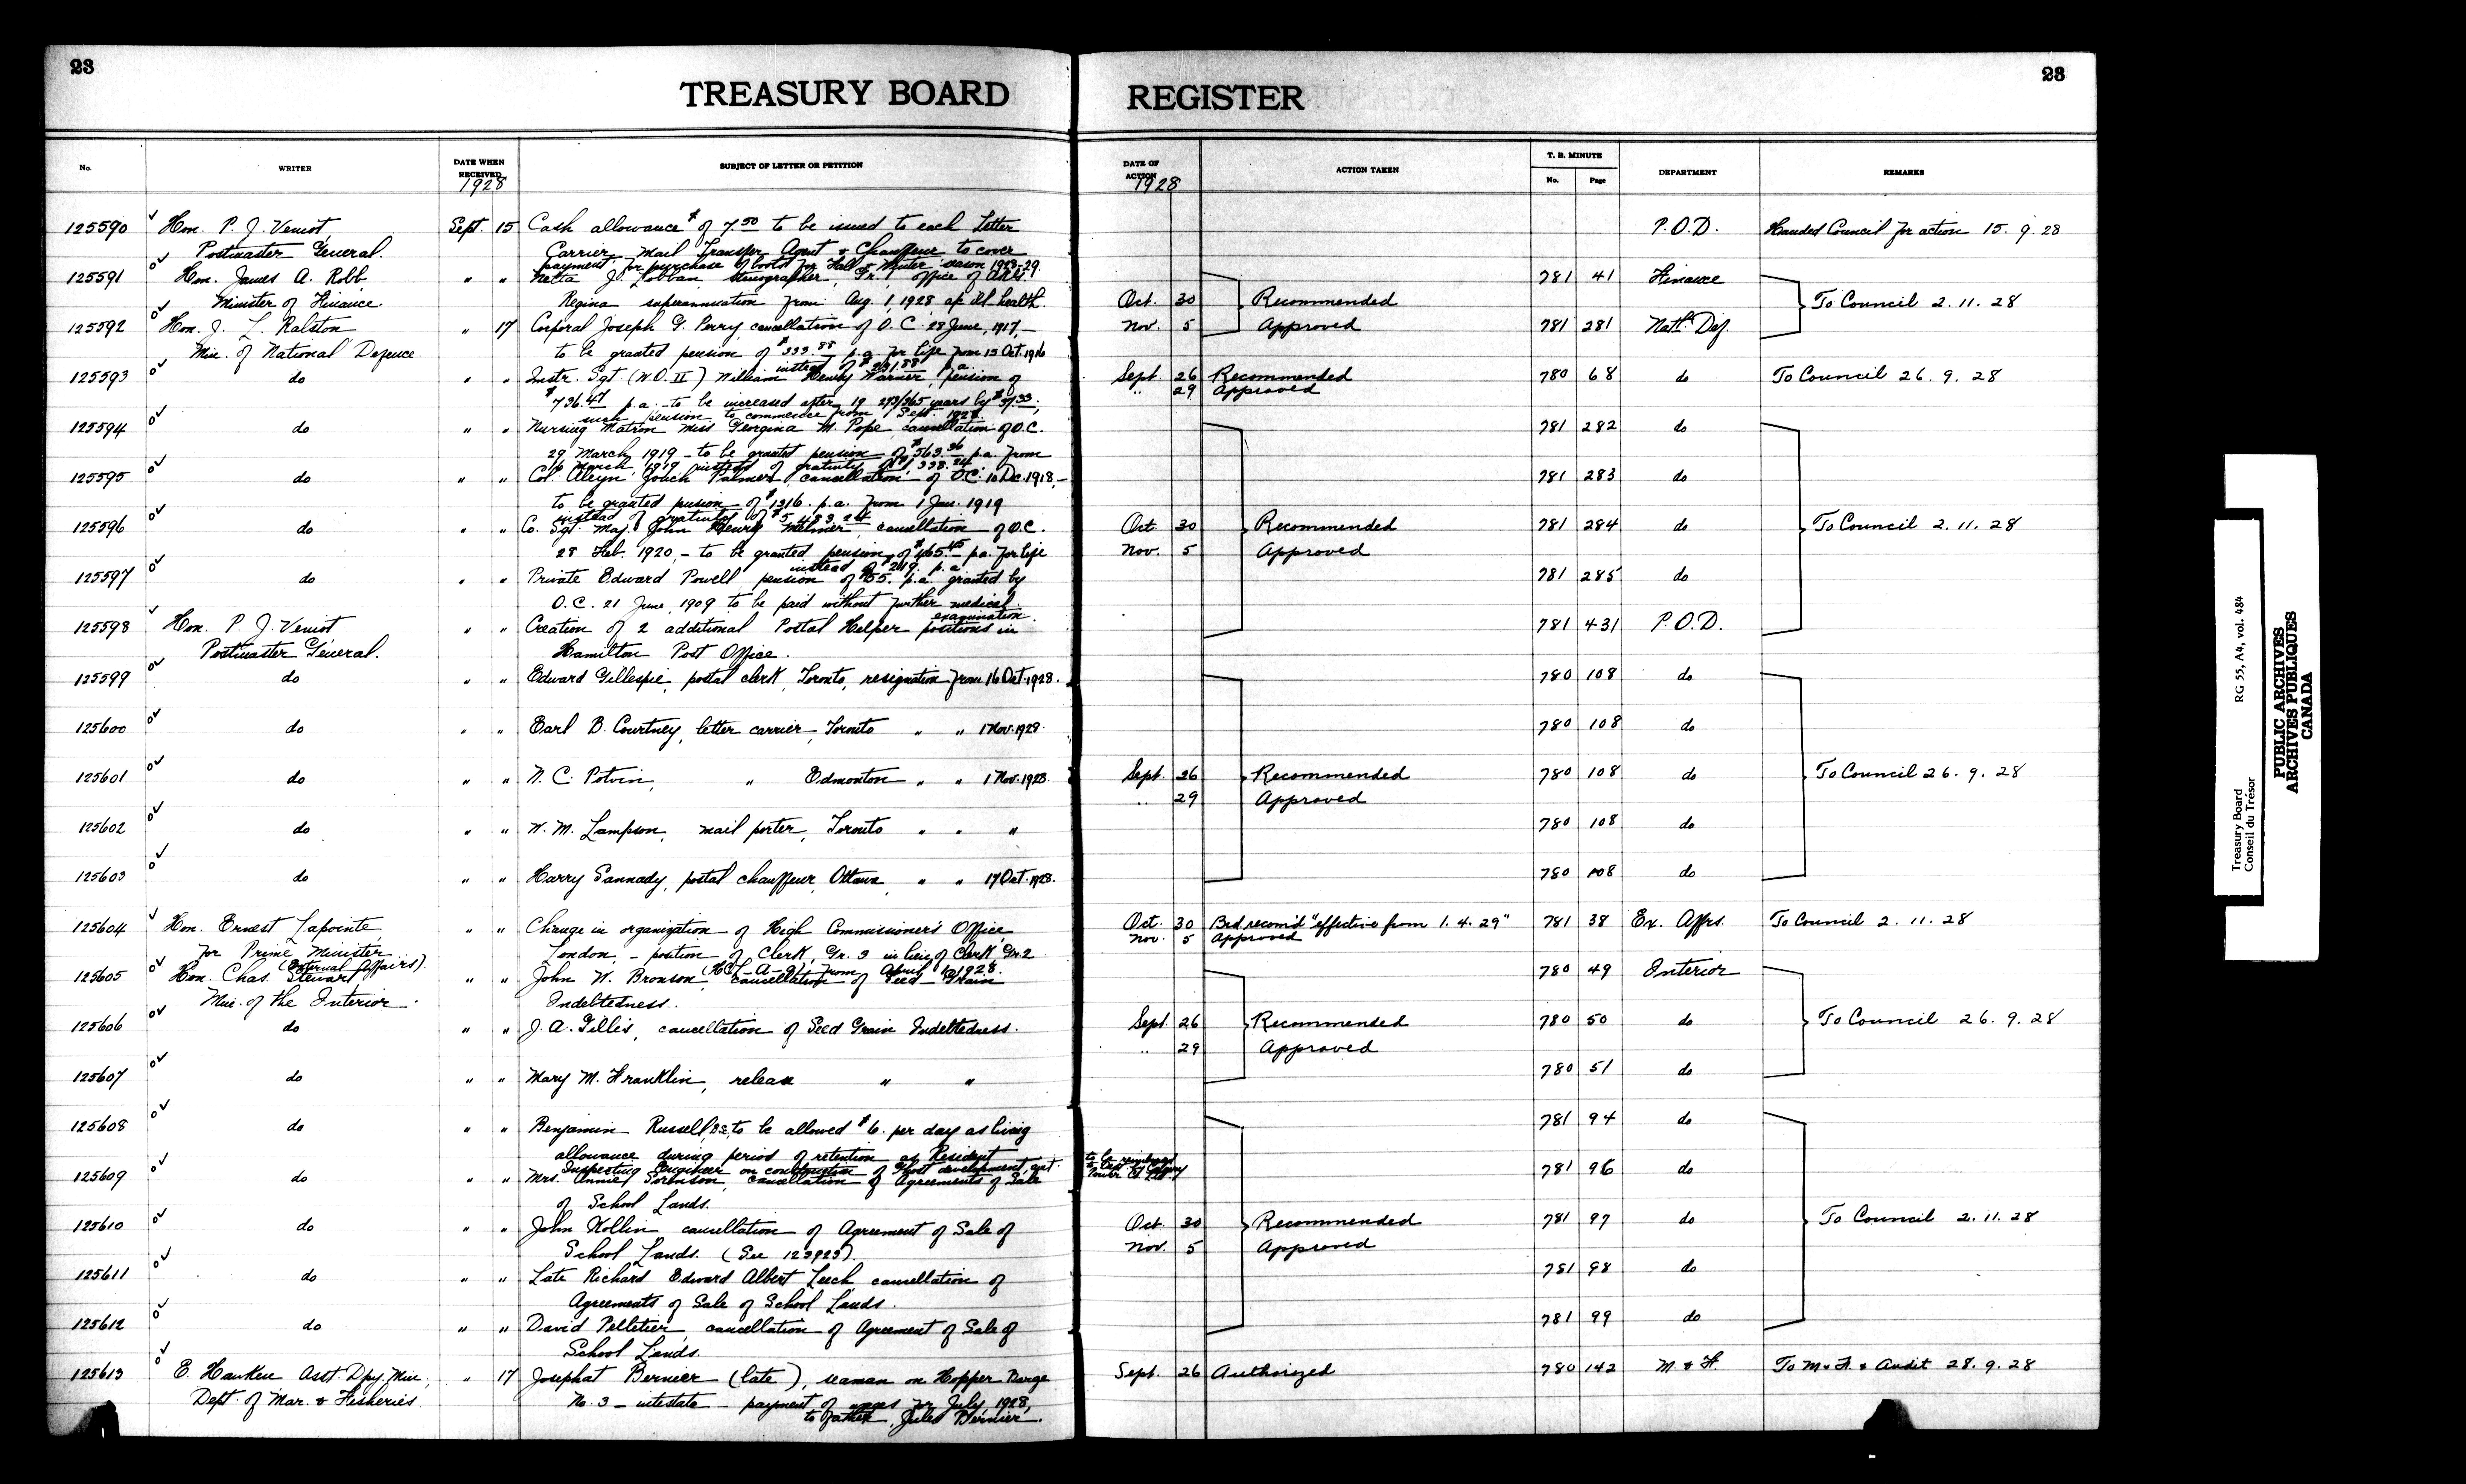 23
TREASURY BOARD REGISTER
23
No. WRITER DATE WHEN RECEIVED SUBJECT OF LETTER OR PETITION DATE OF ACTION ACTION TAKEN T. B. MINUTE No. Page DEPARTMENT REMARKS
1928 1928
125590 Hon. P. J. Veniot, Sept. 15 Cash allowance of $7.50 to be issued to each Letter P.O.D. Handed Council for action 15. 9. 28
Postmaster General. Carrier, Mail Transfer Agent & Chauffeur to cover
payment for purchase of boots for Fall & Winter season 1928-29.
125591 Hon. James A. Robb " " Netta J. Lobban Stenographer, Gr. 1, office of 781 41 Finance
Minister of Finance. Regina superannuation from Aug. 1, 1928, a/c Ill-health. Oct. 30 Recommended To Council 2. 11. 28
125592 Hon. J. L. Ralston " 17 Corporal Joseph G. Perry, cancellation of O.C. 28 June, 1917, – Nov. 5 Approved 781 281 Natl. Def.
Min. of National Defence. to be granted pension of $333.88 p.a. for life from 13 Oct. 1916
instead of $231.88 p.a.
125593 do " " Instr. Sgt. (W.O. II) William Henry Warner, pension of Sept. 26 Recommended 780 68 do To Council 26. 9. 28
$736.47 p.a. to be increased after 19 293/365 years by $37.33; " 29 Approved
such pension to commence from 1 Sept. 1928.
125594 do " " Nursing Matron Miss Georgina M. Pope, cancellation of O.C. 781 282 do
29 March 1919 – to be granted pension of $563.36 p.a. from
March, 1919 instead of gratuity of
125595 do " " Col. Aleyn Gouch Palmer, cancellation of O.C. 10 Dec. 1918, – 781 283 do
to be granted pension of $1316. p.a. from 1 Jan. 1919
instead of gratuity of
125596 do " " Co. Sgt. Maj. John Henry Milner, cancellation of O.C. Oct. 30 Recommended 781 284 do To Council 2. 11. 28
28 Feb. 1920, – to be granted pension of $465.15 p.a. for life Nov. 5 Approved
instead of $219. p.a.
125597 do " " Private Edward Powell pension of $55. p.a. granted by 781 285 do
O.C. 21 June, 1909 to be paid without further medical
examination.
125598 Hon. P. J. Veniot " " Creation of 2 additional Postal Helper positions in 781 431 P.O.D.
Postmaster General. Hamilton Post Office.
125599 do " " Edward Gillespie, postal clerk, Toronto, resignation from 16 Oct. 1928. 780 108 do
125600 do " " Earl B. Courtney, letter carrier, Toronto " " 1 Nov. 1928. 780 108 do
125601 do " " N. C. Potvin, " Edmonton " " 1 Nov. 1928. Sept. 26 Recommended 780 108 do To Council 26. 9. 28
" 29 Approved
125602 do " " W. M. Lampson, mail porter, Toronto " " " 780 108 do
125603 do " " Harry Sannady, postal chauffeur, Ottawa, " " 17 Oct. 1928. 780 108 do
125604 Hon. Ernest Lapointe " " Change in organization of High Commissioner's Office, Oct. 30 Brd. recom'd "effective from 1. 4. 29" 781 38 Ex. Affrs. To Council 2. 11. 28
for Prime Minister London, – position of Clerk, Gr. 3 in lieu of Clerk Gr. 2 Nov. 5 Approved
(External Affairs). from April 1, 1928.
125605 Hon. Chas. Stewart, " " John W. Bronson, cancellation of Seed Grain 780 49 Interior
Min. of the Interior. Indebtedness.
125606 do " " J. A. Gillis, cancellation of Seed Grain Indebtedness. Sept. 26 Recommended 780 50 do To Council 26. 9. 28
" 29 Approved
125607 do " " Mary M. Franklin, release " " 780 51 do
125608 do " " Benjamin Russell, to be allowed $6. per day as living 781 94 do
allowance during period of retention as Resident to be reimbursed
Inspecting Engineer on construction of Ghost development, Power Co. Ltd.
125609 do " " Mrs. Annie Sorenson, cancellation of Agreements of Sale 781 96 do
of School Lands.
125610 do " " John Kollin cancellation of Agreement of Sale of Oct. 30 Recommended 781 97 do To Council 2. 11. 28
School Lands. (See 123923). Nov. 5 Approved
125611 do " " Late Richard Edward Albert Leech cancellation of 781 98 do
Agreements of Sale of School Lands.
125612 do " " David Pelletier, cancellation of Agreement of Sale of 781 99 do
School Lands.
125613 E. Hawken Asst. Dpy. Min., " 17 Josephat Bernier (late), seaman on Hopper Barge Sept. 26 Authorized 780 142 M. & F. To M. & F. & Audit 28. 9. 28
Dept. of Mar. & Fisheries. No. 3 – intestate – payment of wages for July, 1928,
to father, Jules Bernier.
Treasury Board RG 55, A4, vol. 484
Conseil du Trésor
PUBLIC ARCHIVES
ARCHIVES PUBLIQUES
CANADA